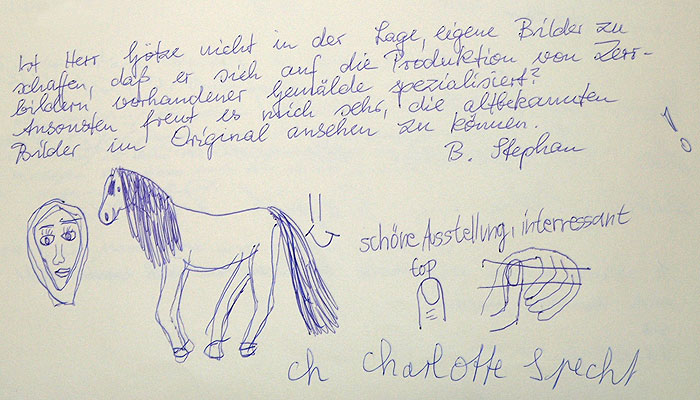 Ist Herr Götze nicht in der Lage, eigene Bilder zu
schaffen, daß er sich auf die Produktion von Zerr-
bildern vorhandener Gemälde spezialisiert?
Ansonsten freut es mich sehr, die altbekannten
Bilder im Original ansehen zu können.
B. Stephan
!
schöne Ausstellung, interressant
top
ch charlotte Specht